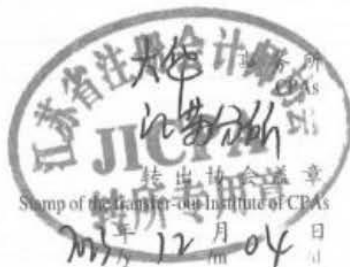 江苏省注册会计师协会
大华 事务所
CPAs
江苏分所
JICPA
转出协会盖章
转所专用章
Stamp of the transfer-out Institute of CPAs
2023年 12月 04日
/y /m /d